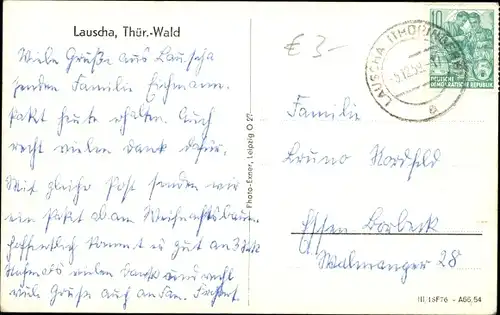 Lauscha, Thür.-Wald
Viele Grüße aus Lauscha
senden Familie Eichmann.
Paket heute erhalten. Auch
recht vielen dank dafür.
Mit gleicher Post senden wir
ein Paket ab am Weihnachtsbaum.
hoffentlich kommt es gut an
vielen Dank und recht
viele Grüße auch an Fam.
Photo-Exner, Leipzig O 27
€ 3-
LAUSCHA (THÜRINGEN)
-5.12.59
a
10
DEUTSCHE
DEMOKRATISCHE REPUBLIK
Familie
Bruno Nordfeld
Essen Borbeck
Walmanger 28
III/18/76 - A66/54